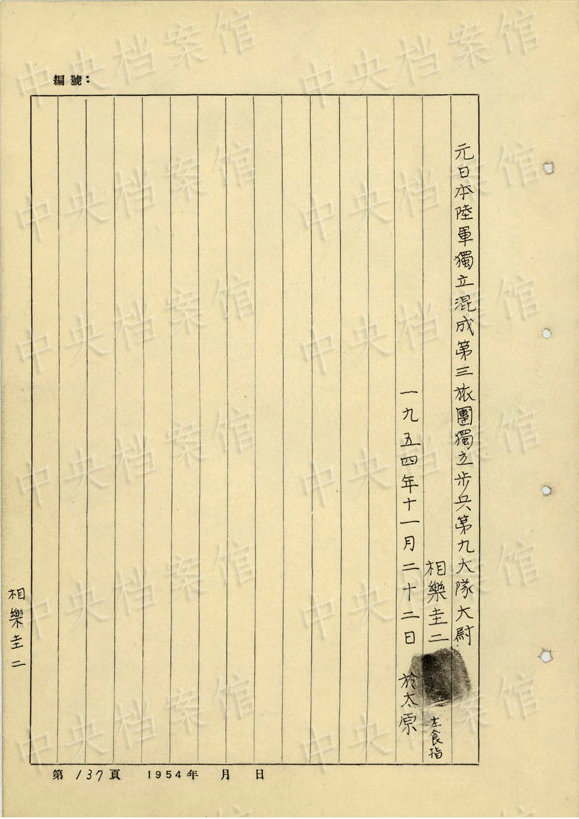 編號：
元日本陸軍獨立混成第三旅團獨立步兵第九大隊大尉
相樂圭二
左食指
一九五四年十一月二十二日 於太原
相樂圭二
第137頁 1954年 月 日
中央档案馆